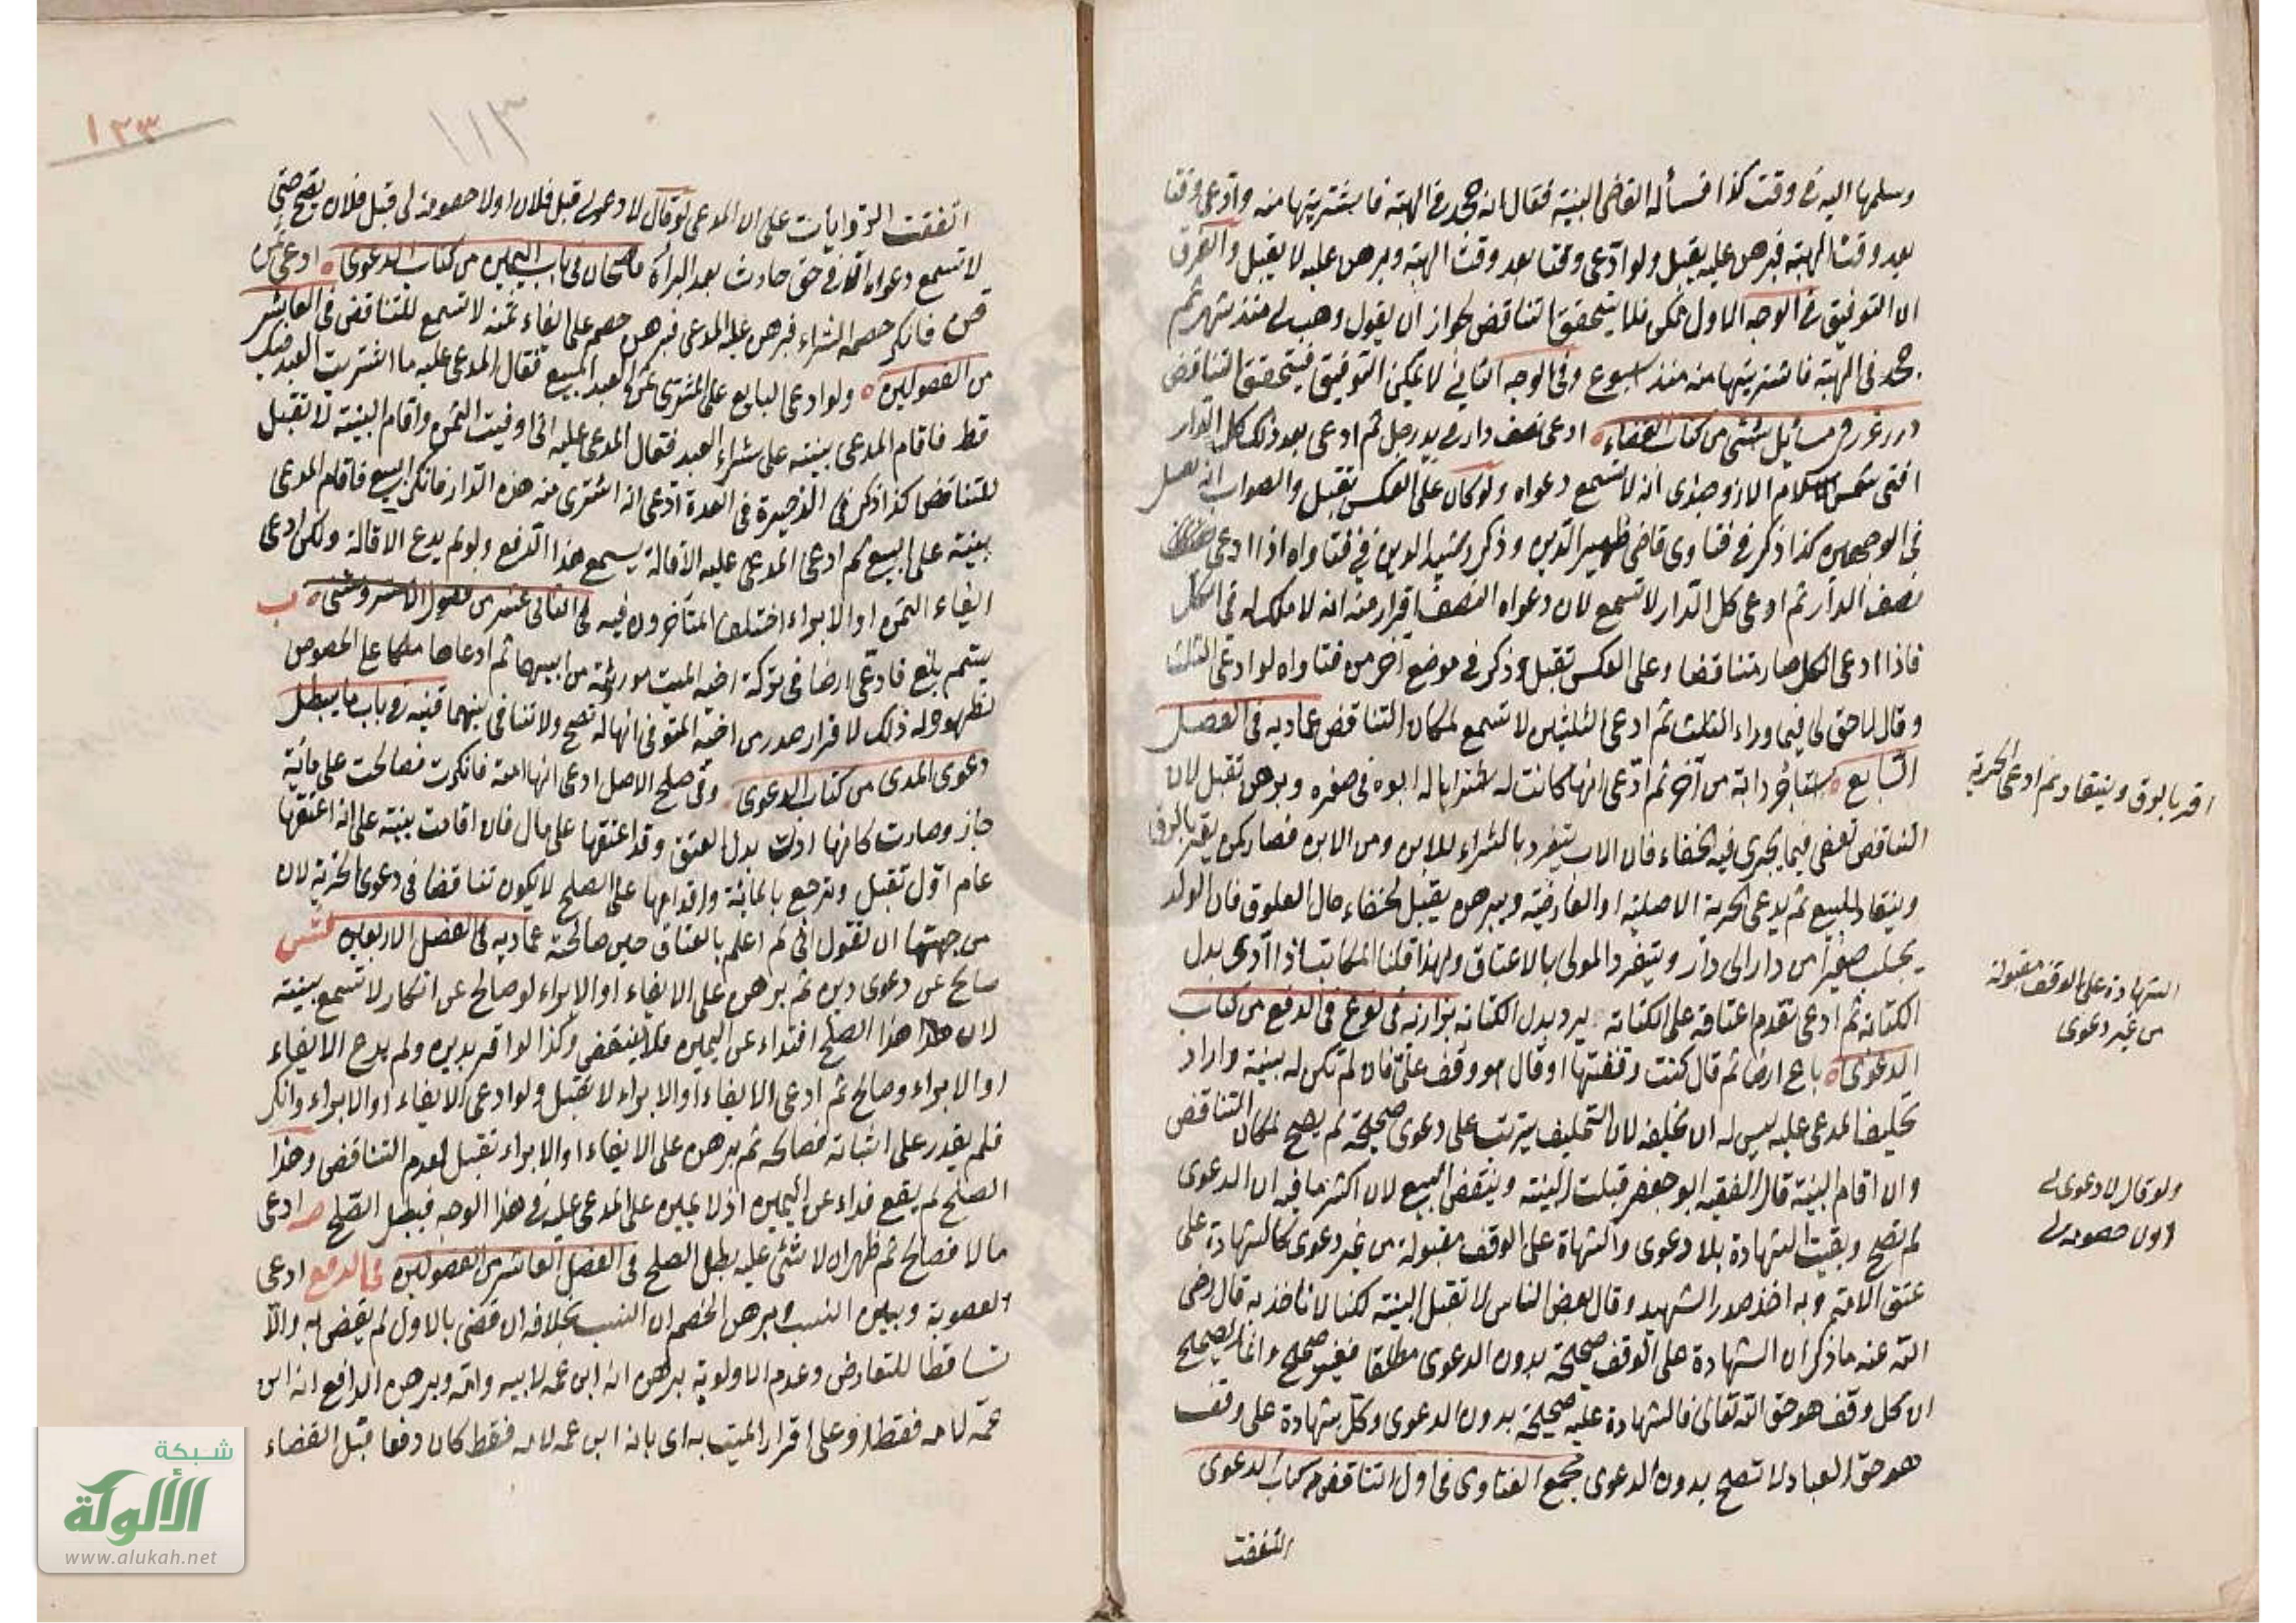 وسلمها اليه في وقت كذا فسأله القاضي البينة فقال انه جحدني الهبة فاشتريتها منه وادعى وقتا
بعد وقت الهبة فبرهن عليه يقبل ولو ادعى وقتا بعد وقت الهبة وبرهن عليه لا يقبل والفرق
ان التوفيق في الوجه الاول ممكن فلا يتحقق التناقض لجواز ان يقول وهب لي منذ شهر ثم
جحدني الهبة فاشتريتها منه منذ اسبوع وفي الوجه الثاني لا يمكن التوفيق فيتحقق التناقض
درر غرر في مسائل شتى من كتاب القضاء ادعى نصف دار في يد رجل ثم ادعى بعد ذلك كل الدار
افتى شمس الاسلام الاوزجندي انه لا تسمع دعواه ولو كان على العكس تقبل والصواب انه تقبل
في الوجهين كذا ذكر في فتاوى قاضي ظهير الدين وذكر رشيد الدين في فتاواه اذا ادعى
نصف الدار ثم ادعى كل الدار لا تسمع لان دعواه النصف اقرار منه انه لا ملك له في الكل
فاذا ادعى الكل صار متناقضا وعلى العكس تقبل وذكر في موضع آخر من فتاواه لو ادعى الثلث
وقال لا حق لي فيما وراء الثلث ثم ادعى الثلثين لا تسمع لمكان التناقض عماديه في الفصل
السابع استأجر دابة من آخر ثم ادعى انها كانت له اشتراها له ابوه في صغره وبرهن تقبل لان
التناقض يعفى فيما يجري فيه الخفاء فان الاب يتفرد بالشراء للابن ومن الابن فصار كمن يقر بالرق
وينقاد للبيع ثم يدعي الحرية الاصلية او العارضية وبرهن يقبل لخفاء حال العلوق فان الولد
يجلب صغيرا من دار الى دار ويتفرد المولى بالاعتاق ولهذا قلنا المكاتب اذا ادى بدل
الكتابة ثم ادعى تقدم اعتاقه على الكتابة يرد بدل الكتابة بزازيه في نوع في الدفع من كتاب
الدعوى باع ارضا ثم قال كنت وقفتها او قال هو وقف علي فان لم تكن له بينة واراد
تحليف المدعى عليه ليس له ان يحلفه لان التحليف يترتب على دعوى صحيحة لم يصح لمكان التناقض
وان اقام البينة قال الفقيه ابو جعفر قبلت البينة وينتقض البيع لان اكثر ما فيه ان الدعوى
لم تصح وبقيت الشهادة بلا دعوى والشهادة على الوقف مقبولة من غير دعوى كالشهادة على
عتق الامة وبه اخذ صدر الشهيد وقال بعض الناس لا تقبل البينة لكنا لا ناخذ به قال رضي
الله عنه ما ذكر ان الشهادة على الوقف صحيحة بدون الدعوى مطلقا فغير صحيح وانما الصحيح
ان كل وقف هو حق الله تعالى فالشهادة عليه صحيحة بدون الدعوى وكل شهادة على وقف
هو حق العباد لا تصح بدون الدعوى مجمع الفتاوى في اول التناقض من كتاب الدعوى
اتفقت
اقر بالرق وينقاد ثم ادعى الحرية
الشهادة على الوقف مقبولة
من غير دعوى
ولو قال لا دعوى لي
او لا خصومة لي
١٣٣
١١٣
اتفقت الروايات على ان المدعي لو قال لا دعوى لي قبل فلان او لا خصومة لي قبل فلان يصح حتى
لا تسمع دعواه الا في حق حادث بعد البرأة قاضيخان في باب اليمين من كتاب الدعوى ادعى
فانكر خصمه الشراء فبرهن عليه المدعي فبرهن خصمه على ايفاء ثمنه لا تسمع للتناقض في العاشر
من الفصولين ولو ادعى البايع على المشتري ثمن العبد المبيع فقال المدعى عليه ما اشتريت العبد منك
قط فاقام المدعي بينة على شراء العبد فقال المدعى عليه اني اوفيت الثمن واقام البينة لا تقبل
للتناقض كذا ذكر في الذخيرة في العدة ادعى انه اشترى منه هذه الدار فانكر البيع فاقام المدعي
بينة على البيع ثم ادعى المدعى عليه الاقالة يسمع هذا الدفع ولو لم يدع الاقالة ولكن ادعى
ايفاء الثمن او الابراء اختلف المتأخرون فيه في الثاني عشر من فصول
يتيم بلغ فادعى ارضا في تركة اخيه الميت موروثة من ابيهما ثم ادعاها ملكا على الخصوص
لظهور له ذلك لاقرار صدر من اخيه المتوفى انها له تصح ولا تنافي بينهما قنيه في باب ما يبطل
دعوى المدعي من كتاب الدعوى وفي صلح الاصل ادعى انها امته فانكرت فصالحت على مائة
جاز وصارت كانها ادت بدل العتق وقد اعتقها على مال فان اقامت بينة على انه اعتقها
عام اول تقبل وترجع بالمائة واقدامها على الصلح لا يكون تناقضا في دعوى الحرية لان
من جهتها ان تقول اني لم اعلم بالعتاق حين صالحته عماديه في الفصل الاربعين
صالح عن دعوى دين ثم برهن على الايفاء او الابراء لو صالح عن انكار لا تسمع بينته
لان هذا الصلح افتداء عن اليمين فلا ينتقض وكذا لو اقر بدين ولم يدع الايفاء
او الابراء وصالح ثم ادعى الايفاء او الابراء لا تقبل ولو ادعى الايفاء او الابراء وانكر
فلم يقدر على اثباته فصالحه ثم برهن على الايفاء او الابراء تقبل لعدم التناقض وهذا
الصلح لم يقع فداء عن اليمين اذ لا يمين على المدعى عليه في هذا الوجه فبطل الصلح ادعى
مالا فصالح ثم ظهر ان لا شئ عليه بطل الصلح في الفصل العاشر من الفصولين في الدفع ادعى
العصوبة وبين النسب وبرهن الخصم ان النسب بخلافه ان قضى بالاول لم يقض به والا
تساقطا للتعارض وعدم الاولوية برهن انه ابن عمه لابيه وامه وبرهن الدافع انه ابن
عمه لامه فقط او على اقرار الميت به اي بانه ابن عمه لامه فقط كان دفعا قبل القضاء
شبكة
الألوكة
www.alukah.net